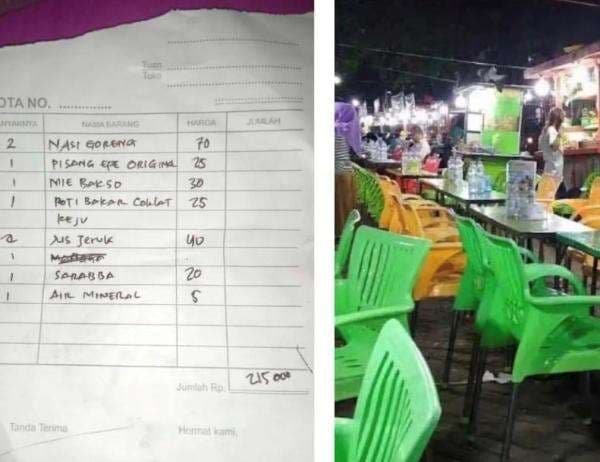 Tuan
Toko
OTA NO. ..............
NYAKNYA NAMA BARANG HARGA JUMLAH
2 NASI GORENG 70
1 PISANG EPE ORIGINA 25
1 MIE BAKSO 30
1 ROTI BAKAR COKLAT 25
KEJU
2 JUS JERUK 40
1
1 SARABBA 20
1 AIR MINERAL 5
Jumlah Rp. 215 000
Tanda Terima Hormat kami,